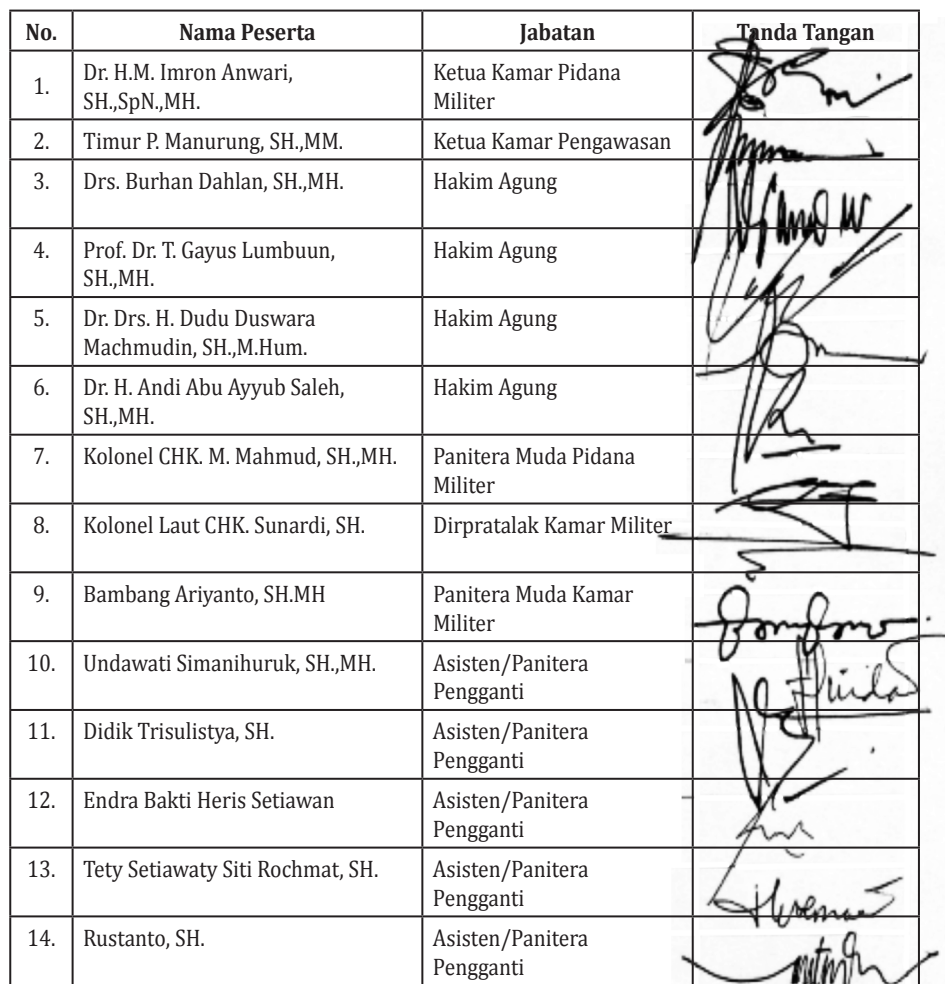 No. Nama Peserta Jabatan Tanda Tangan
1. Dr. H.M. Imron Anwari, Ketua Kamar Pidana
SH.,SpN.,MH. Militer
2. Timur P. Manurung, SH.,MM. Ketua Kamar Pengawasan
3. Drs. Burhan Dahlan, SH.,MH. Hakim Agung
4. Prof. Dr. T. Gayus Lumbuun, Hakim Agung
SH.,MH.
5. Dr. Drs. H. Dudu Duswara Hakim Agung
Machmudin, SH.,M.Hum.
6. Dr. H. Andi Abu Ayyub Saleh, Hakim Agung
SH.,MH.
7. Kolonel CHK. M. Mahmud, SH.,MH. Panitera Muda Pidana
Militer
8. Kolonel Laut CHK. Sunardi, SH. Dirpratalak Kamar Militer
9. Bambang Ariyanto, SH.MH Panitera Muda Kamar
Militer
10. Undawati Simanihuruk, SH.,MH. Asisten/Panitera
Pengganti
11. Didik Trisulistya, SH. Asisten/Panitera
Pengganti
12. Endra Bakti Heris Setiawan Asisten/Panitera
Pengganti
13. Tety Setiawaty Siti Rochmat, SH. Asisten/Panitera
Pengganti
14. Rustanto, SH. Asisten/Panitera
Pengganti